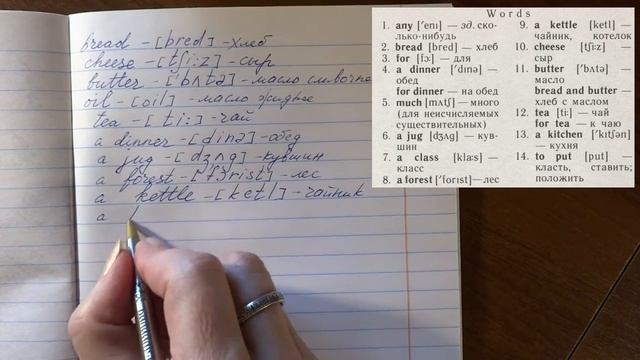 bread - [bred] - хлеб
cheese - [tʃi:z] - сыр
butter - ['bʌtə] - масло сливочн
oil - [oil] - масло жидкое
tea - [ti:] - чай
a dinner - [dinə] - обед
a jug - [dʒʌg] - кувшин
a forest - [fɔrist] - лес
a kettle - [ketl] - чайник
a
Words
1. any ['enɪ] — зд. ско-
лько-нибудь
2. bread [bred] — хлеб
3. for [fɔ:] — для
4. a dinner ['dɪnə] —
обед
for dinner — на обед
5. much [mʌtʃ] — много
(для неисчисляемых
существительных)
6. a jug [dʒʌg] — кув-
шин
7. a class [klɑ:s] —
класс
8. a forest ['fɒrɪst] — лес
9. a kettle [ketl] —
чайник, котелок
10. cheese [tʃi:z] —
сыр
11. butter ['bʌtə] —
масло
bread and butter —
хлеб с маслом
12. tea [ti:] — чай
for tea — к чаю
13. a kitchen ['kɪtʃən]
— кухня
14. to put [put] —
класть, ставить;
положить